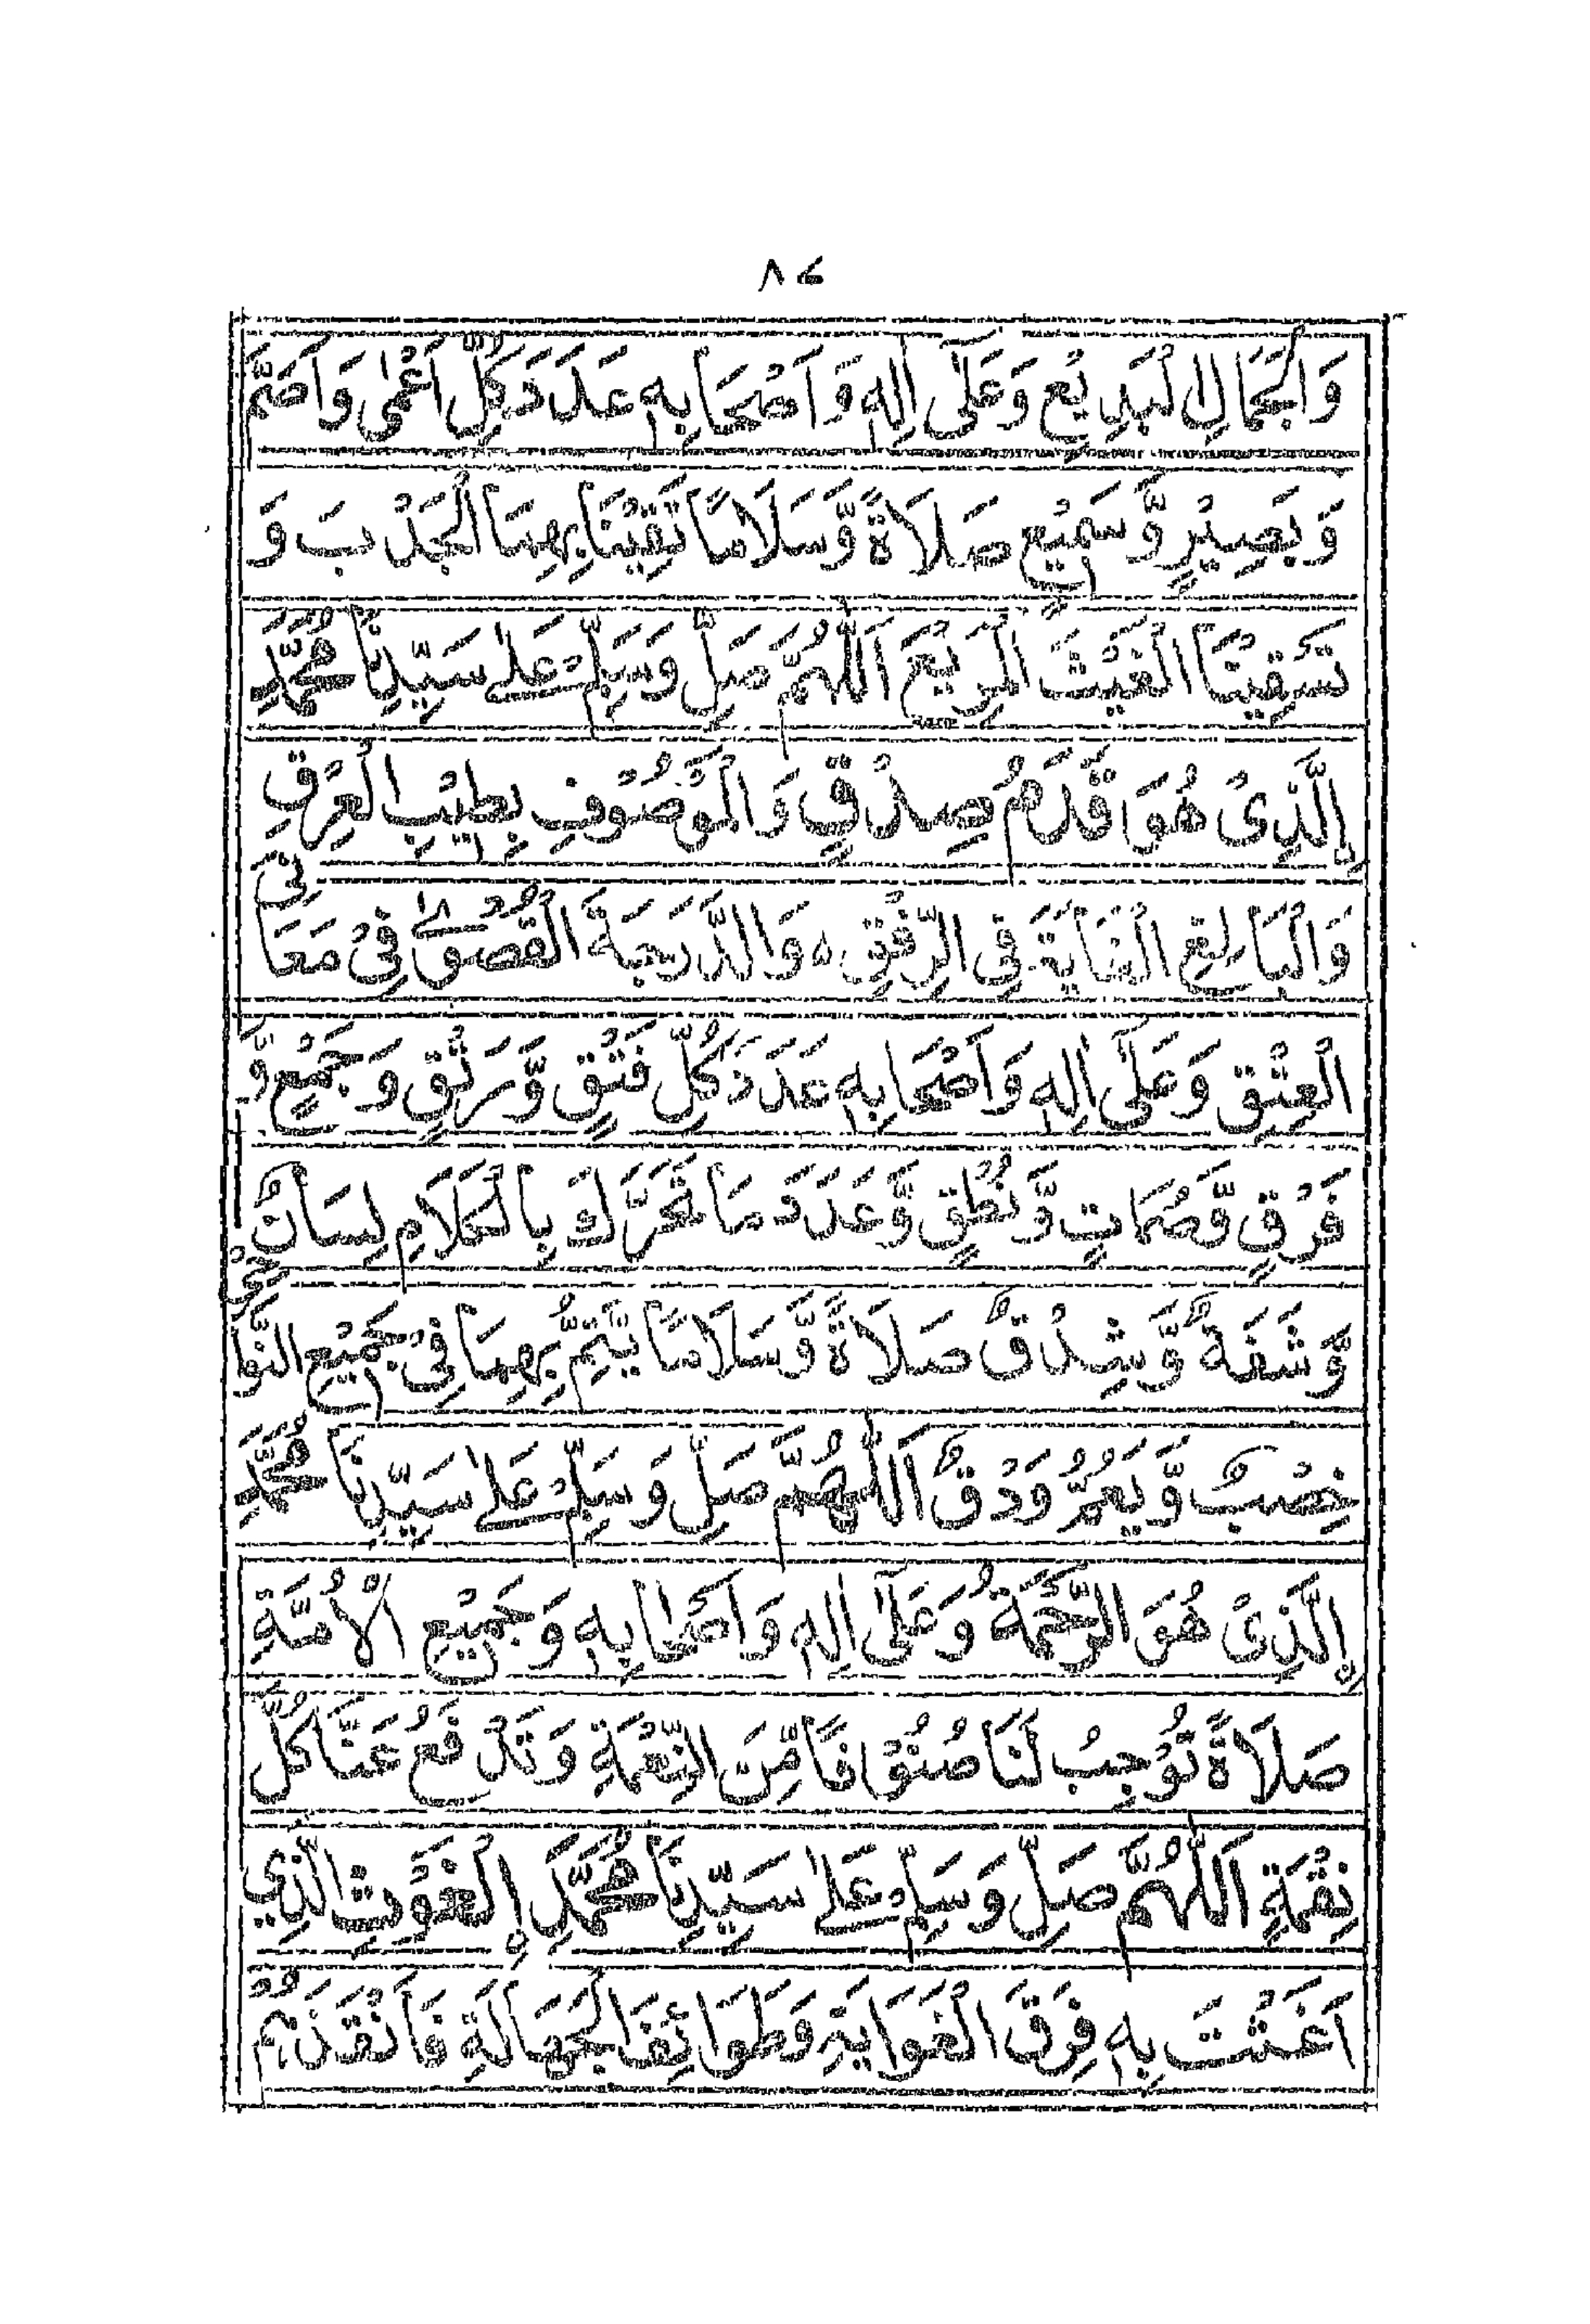 ٨٤
وَالْجَمَالِ الْبَدِيْعِ وَعَلٰى اٰلِهٖ وَاَصْحَابِهٖ عَدَدَ كُلِّ اَعْمٰى وَاَصَمَّ
وَّبَصِيْرٍ وَّسَمِيْعٍ صَلَاةً وَّسَلَامًا تَقِيْنَا بِهِمَا الْجَدْبَ وَ
تَسْقِيْنَا الْغَيْثَ الْمَرِيْعَ اَللّٰهُمَّ صَلِّ وَسَلِّمْ عَلٰى سَيِّدِنَا مُحَمَّدِ
اِلَّذِىْ هُوَ قَدَمُ صِدْقٍ وَالْمَوْصُوْفِ بِطِيْبِ الْعِرْقِ
وَالْبَالِغِ الْغَايَةَ فِى الرِّفْقِ وَالدَّرَجَةَ الْقُصْوٰى فِىْ مَعَانِى
الْعِتْقِ وَعَلٰى اٰلِهٖ وَاَصْحَابِهٖ عَدَدَ كُلِّ فَتْقٍ وَّرَتْقٍ وَجَمْعٍ وَّ
فَرْقٍ وَّصُمَاتٍ وَّنُطْقٍ وَّعَدَدَ مَا تَحَرَّكَ بِالْكَلَامِ لِسَانٌ
وَّشَفَةٌ وَّشِدْقٌ صَلَاةً وَّسَلَامًا يَتِمُّ بِهِمَا فِىْ جَمِيْعِ النَّوَاحِىْ
خِصْبٌ وَّيَعُمُّ وَدْقٌ اَللّٰهُمَّ صَلِّ وَسَلِّمْ عَلٰى سَيِّدِنَا مُحَمَّدِ
اِلَّذِىْ هُوَ الرَّحْمَةُ وَعَلٰى اٰلِهٖ وَاَصْحَابِهٖ وَجَمِيْعِ الْاُمَّةِ
صَلَاةً تُوْجِبُ لَنَا صُنُوْفًا مِّنَ النِّعْمَةِ وَتَدْفَعُ عَنَّا كُلَّ
نِقْمَةٍ اَللّٰهُمَّ صَلِّ وَسَلِّمْ عَلٰى سَيِّدِنَا مُحَمَّدِ اِلْغَوْثِ الَّذِي
اَغَثْتَ بِهٖ فِرَقَ الْغَوَايَةِ وَطَوَائِفَ الْجَهَالَةِ فَاَنْقَذْتَهُمْ